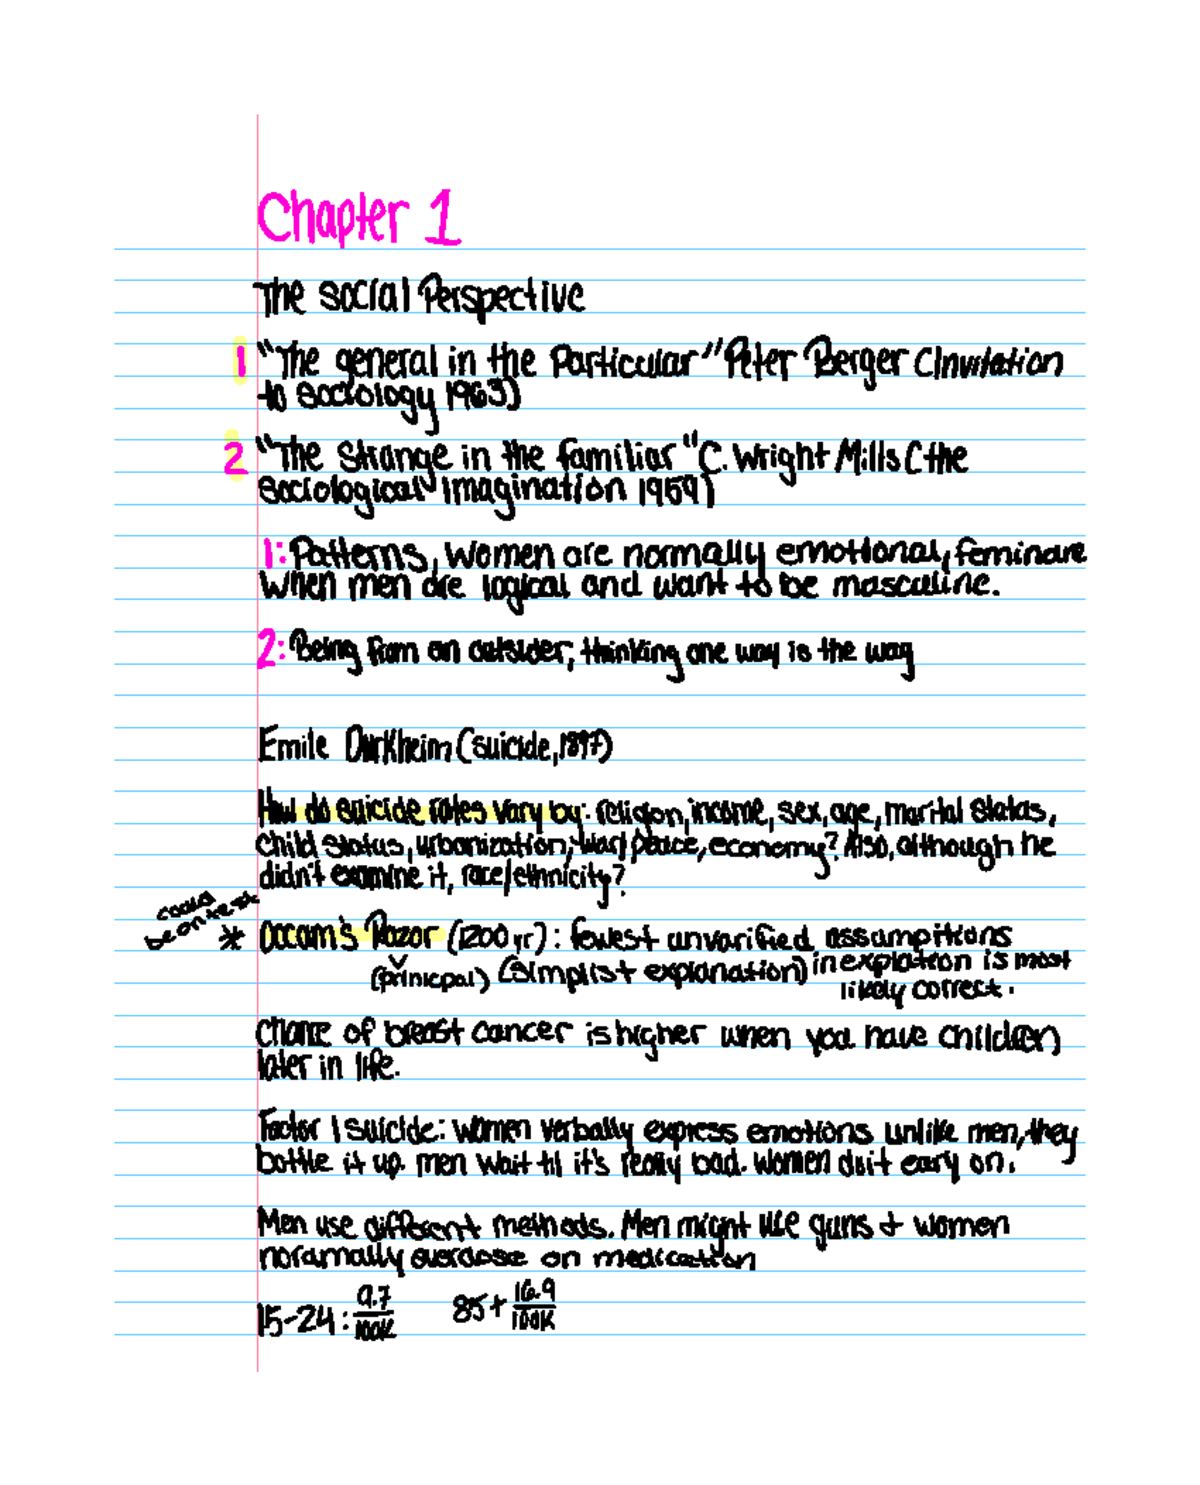 Chapter 1
The Social Perspective
1 "The general in the Particular" Peter Berger (Invitation
to Sociology 1963)
2 "The strange in the familiar" C. Wright Mills (the
Sociological imagination 1959)
1: Patterns, Women are normally emotional, feminine
when men are logical and want to be masculine.
2: Being from an outsider, thinking one way is the way
Emile Durkheim (suicide, 1897)
How do suicide rates vary by: religion, income, sex, age, marital status,
child status, urbanization, war/peace, economy? Also, although he
didn't examine it, race/ethnicity?
could
be on test
* Occam's Razor (1200 yr): fewest unvarified assumpitions
(prinicpal) (simplist explanation) in explation is most
likely correct.
Chance of breast cancer is higher when you have children
later in life.
Factor 1 suicide: women verbally express emotions unlike men, they
bottle it up. men wait til it's really bad. Women do it eary on.
Men use different methods. Men might use guns + women
noramally overdose on medication
15-24: 9.7/100K 85+ 16.9/100K